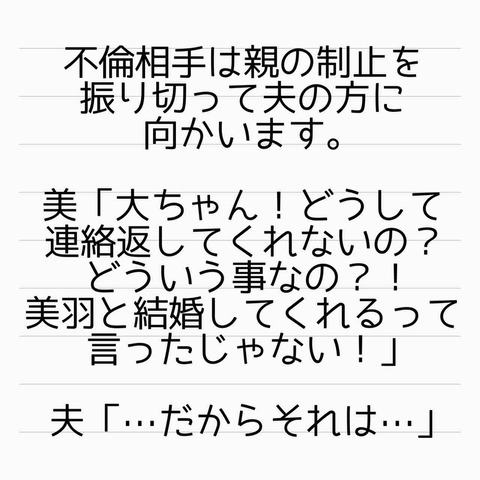 不倫相手は親の制止を
振り切って夫の方に
向かいます。
美「大ちゃん！どうして
連絡返してくれないの？
どういう事なの？！
美羽と結婚してくれるって
言ったじゃない！」
夫「…だからそれは…」